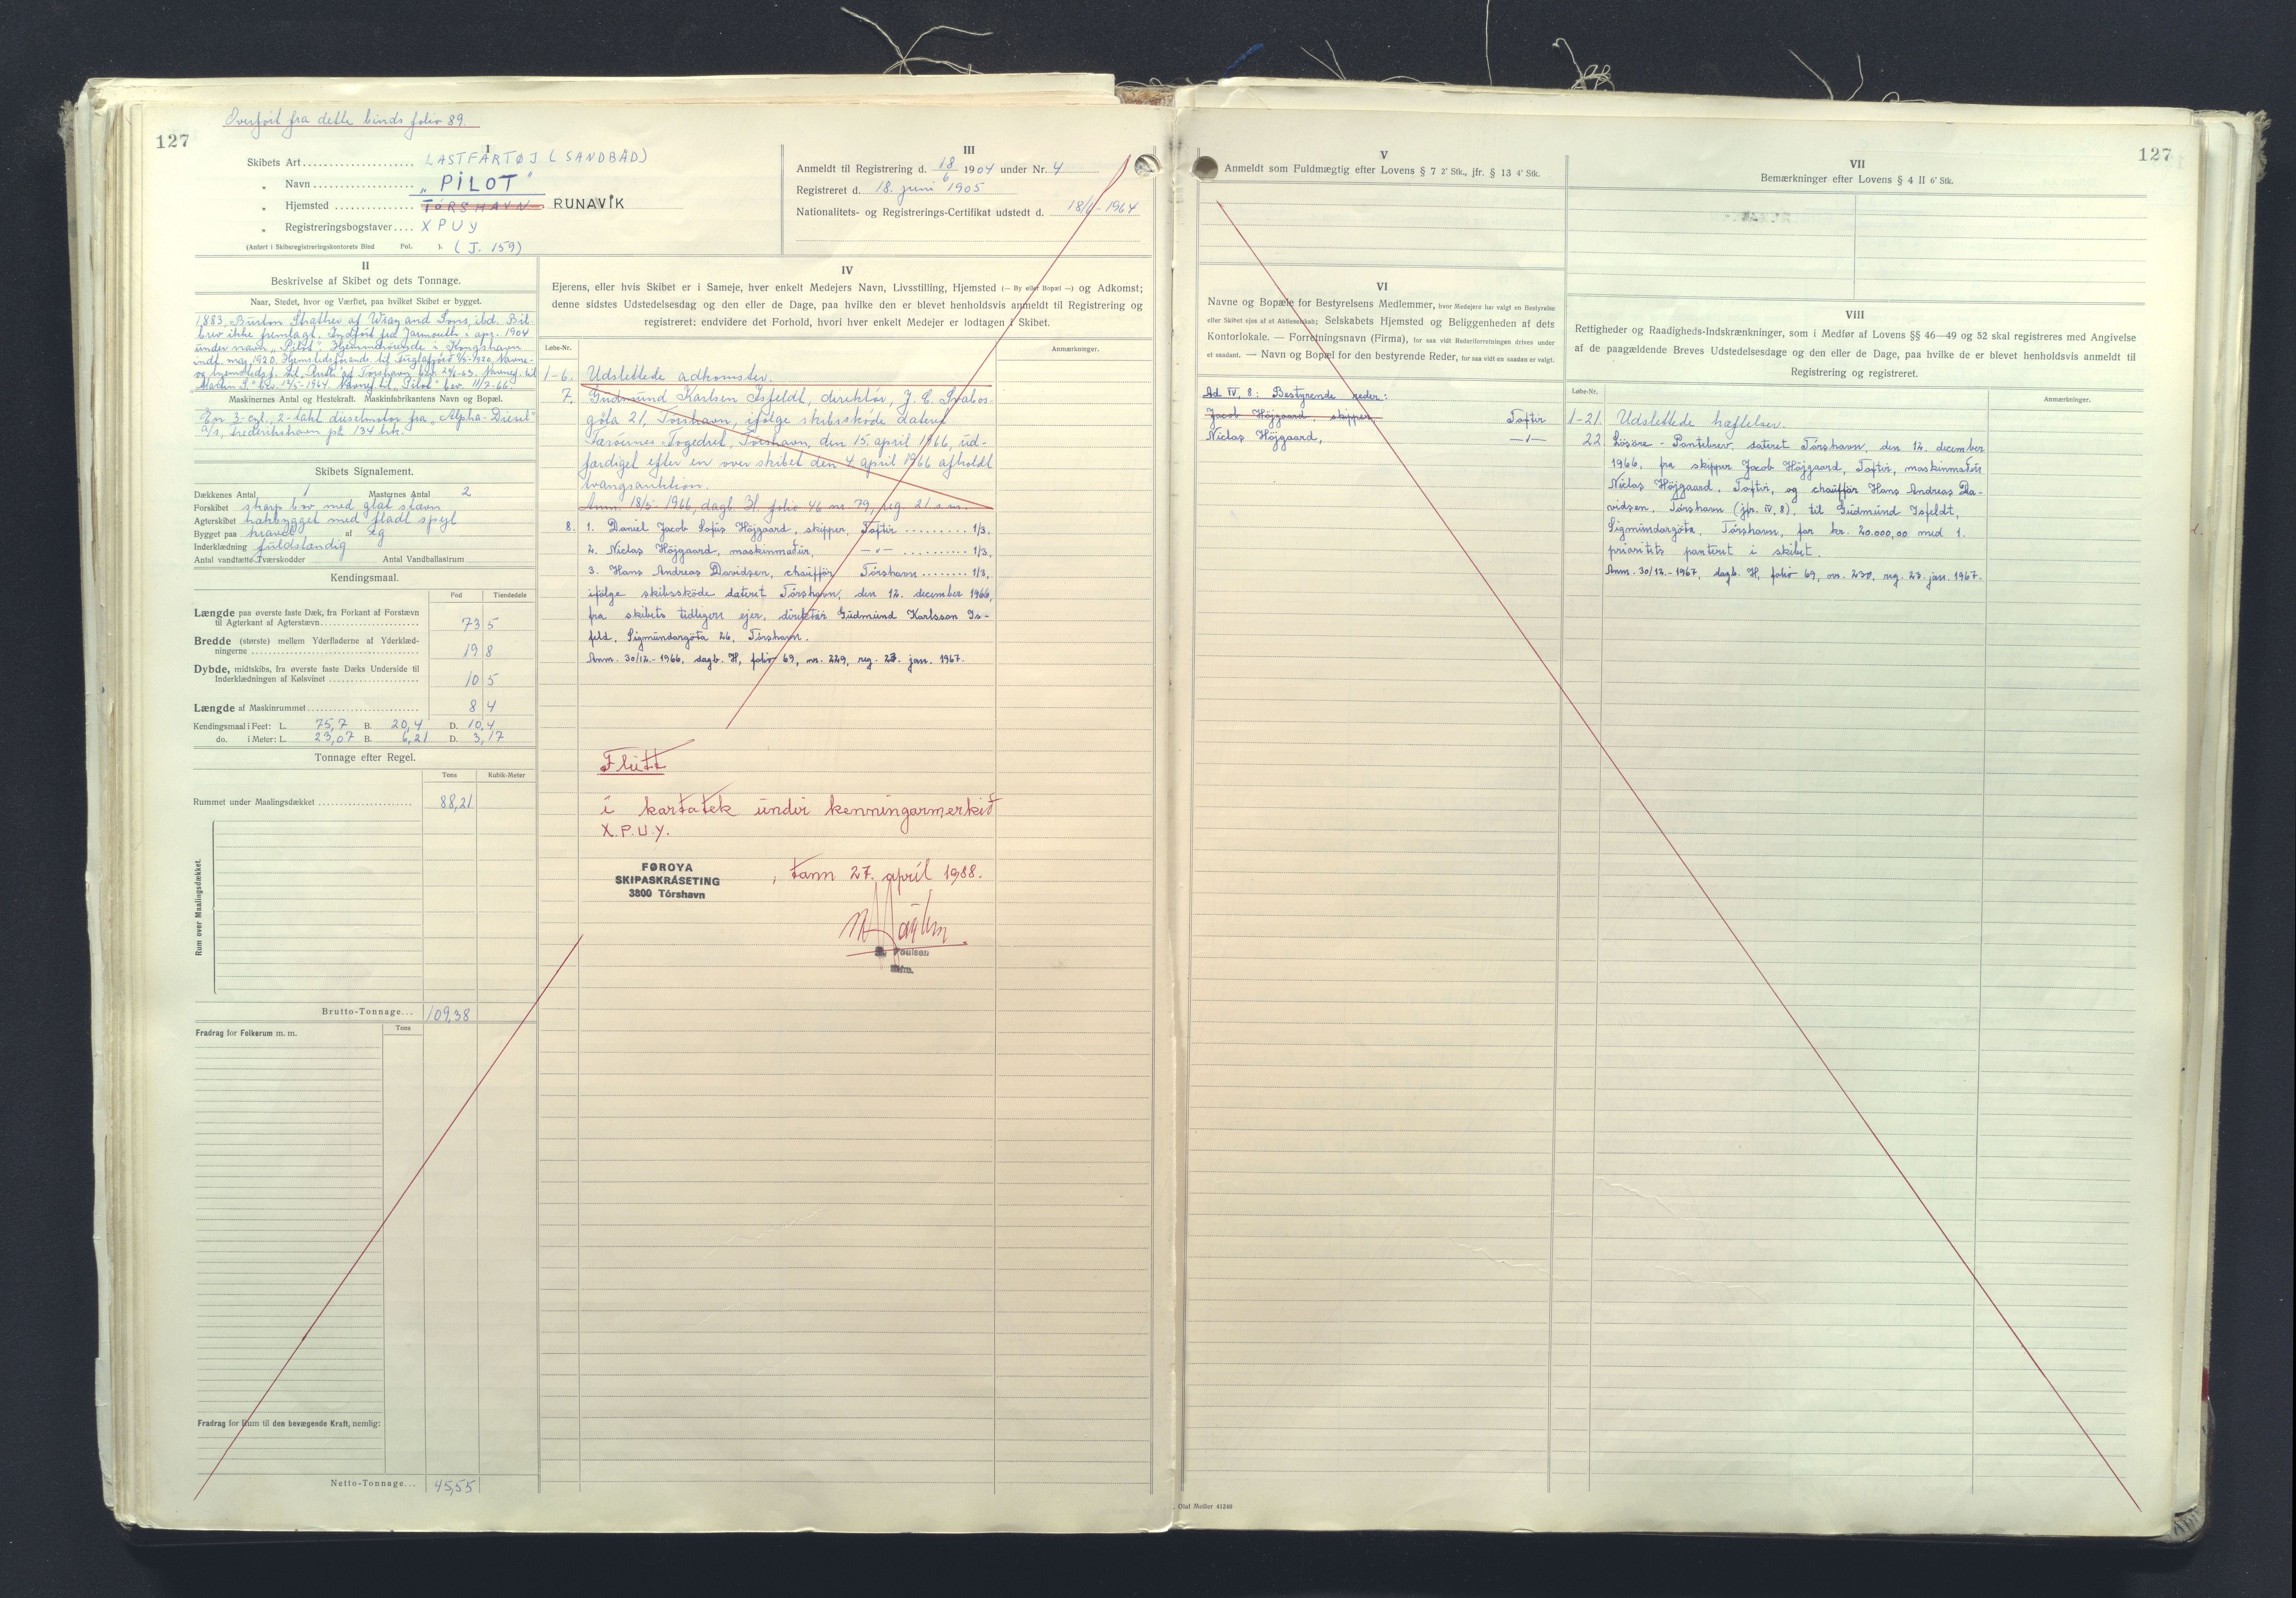 Overført fra dette binds folio 89.
127
I
Skibets Art .................... LASTFARTØJ (SANDBÅD)
" Navn .................. „PILOT"
" Hjemsted .............. TÓRSHAVN RUNAVÍK
" Registreringsbogstaver.... XPUY
(Anført i Skibsregistreringskontorets Bind Fol. ). (J. 159)
III
Anmeldt til Registrering d. 18/6 1904 under Nr. 4
Registreret d. 18. juni 1905
Nationalitets- og Registrerings-Certifikat udstedt d. 18/6-1964
II
Beskrivelse af Skibet og dets Tonnage.
Naar, Stedet, hvor og Værftet, paa hvilket Skibet er bygget.
1883, Burton Strather af Wray and Sons, ibd. Bil-
brev ikke fremlagt. Indført fra Yarmouth i apr. 1904
under navn „Pilot" Hjemmehørende i Kongshavn
indt. maj 1920. Hjemstedsforandr. til Fuglafjørð 1920, Navne-
og hjemstedsf. til „Ruth" af Tórshavn bev. 24/6-63. Navnef. til
„Martin S." bev. 1964. Navnef. til „Pilot" bev. 11/7-66.
Maskinernes Antal og Hestekraft. Maskinfabrikantens Navn og Bopæl.
En 3-cyl., 2-takt dieselmotor fra „Alpha-Diesel"
A/S, Frederikshavn på 134 hrk.
Skibets Signalement.
Dækkenes Antal 1 Masternes Antal 2
Forskibet skarp bov med glat stævn
Agterskibet hækbygget med fladt spejl
Bygget paa kravel af eg
Inderklædning fuldstændig
Antal vandtætte Tværskodder Antal Vandballastrum
Kendingsmaal.
Fod Tiendedele
Længde paa øverste faste Dæk, fra Forkant af Forstævn
til Agterkant af Agterstævn 73 5
Bredde (største) mellem Yderfladerne af Yderklæd-
ningerne 19 8
Dybde, midtskibs, fra øverste faste Dæks Underside til
Inderklædningen af Kølsvinet 10 5
Længde af Maskinrummet 8 4
Kendingsmaal i Feet: L. 75,7 B. 20,4 D. 10,4
do. i Meter: L. 23,07 B. 6,21 D. 3,17
Tonnage efter Regel.
Tons Kubik-Meter
Rummet under Maalingsdækket 88,21
Rum over Maalingsdækket.
Brutto-Tonnage... 109,38
Fradrag for Folkerum m. m. Tons
Fradrag for Rum til den bevægende Kraft, nemlig:
Netto-Tonnage... 45,55
IV
Ejerens, eller hvis Skibet er i Sameje, hver enkelt Medejers Navn, Livsstilling, Hjemsted (— By eller Bopæl —) og Adkomst;
denne sidstes Udstedelsesdag og den eller de Dage, paa hvilke den er blevet henholdsvis anmeldt til Registrering og
registreret: endvidere det Forhold, hvori hver enkelt Medejer er lodtagen i Skibet.
Løbe-Nr. Anmærkninger.
1-6. Udslettede adkomster.
7. Gudmund Karlsen Isfeldt, direktør, J. C. Svabos-
gøta 21, Tórshavn, ifølge skibsskøde dateret
Færøernes Fogedret, Tórshavn, den 15. april 1966, ud-
færdiget efter en over skibet den 4. april 1966 afholdt
tvangsauktion.
Anm. 18/5-1966, dagb. H. folio 46 nr. 79, reg. 21 s.m.
8. 1. Daniel Jacob Sofus Højgaard, skipper, Toftir ......... 1/3,
2. Niclas Højgaard, maskinmaður, —"— .......... 1/3,
3. Hans Andreas Davidsen, chauffør Tórshavn ........ 1/3,
ifølge skibsskøde dateret Tórshavn, den 12. december 1966,
fra skibets tidligere ejer, direktør Gudmund Karlsson Is-
feld, Sigmundargøta 26, Tórshavn.
Anm. 30/12.-1966, dagb. H, folio 69, nr. 229, reg. 23. jan. 1967.
Flutt
í kartatek undir kenningarmerkið
X.P.U.Y.
FØROYA
SKIPASKRÁSETING
3800 Tórshavn
, tann 27. apríl 1988.
Poulsen
V
Anmeldt som Fuldmægtig efter Lovens § 7 2' Stk., jfr. § 13 4' Stk.
VI
Navne og Bopæle for Bestyrelsens Medlemmer, hvor Medejere har valgt en Bestyrelse
eller Skibet ejes af et Aktieselskab; Selskabets Hjemsted og Beliggenheden af dets
Kontorlokale. — Forretningsnavn (Firma), for saa vidt Rederiforretningen drives under
et saadant. — Navn og Bopæl for den bestyrende Reder, for saa vidt en saadan er valgt.
Ad IV, 8: Bestyrende reder:
Jacob Højgaard, skipper, Toftir
Niclas Højgaard, —"—
VII
Bemærkninger efter Lovens § 4 II 6' Stk.
127
VIII
Rettigheder og Raadigheds-Indskrænkninger, som i Medfør af Lovens §§ 46—49 og 52 skal registreres med Angivelse
af de paagældende Breves Udstedelsesdage og den eller de Dage, paa hvilke de er blevet henholdsvis anmeldt til
Registrering og registreret.
Løbe-Nr. Anmærkninger.
1-21. Udslettede hæftelser.
22. Løsøre - Pantebrev, dateret Tórshavn, den 12. december
1966, fra skipper Jacob Højgaard, Toftir, maskinmaður
Niclas Højgaard, Toftir, og chauffør Hans Andreas Da-
vidsen, Tórshavn (jfr. IV, 8), til Gudmund Isfeldt,
Sigmundargøta, Tórshavn, for kr. 20.000,00 med 1.
prioritets panteret i skibet.
Anm. 30/12.-1967, dagb. H, folio 69, nr. 230, reg. 23. jan. 1967.
Olaf Møller 41248